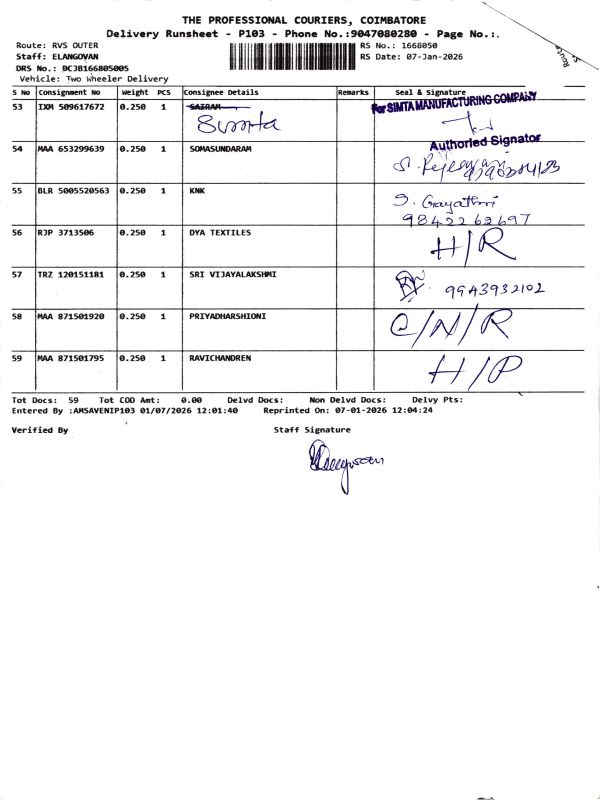 THE PROFESSIONAL COURIERS, COIMBATORE
Delivery Runsheet - P103 - Phone No.:9047080280 - Page No.:.
Route: RVS OUTER RS No.: 1668050
Staff: ELANGOVAN RS Date: 07-Jan-2026
DRS No.: DCJB166805005
Vehicle: Two Wheeler Delivery
Route
S No Consignment No Weight PCS Consignee Details Remarks Seal & Signature
53 IXM 509617672 0.250 1 SAIRAM For SIMTA MANUFACTURING COMPANY
Simta
Authoried Signator
54 MAA 653299639 0.250 1 SOMASUNDARAM
55 BLR 5005520563 0.250 1 KNK S. Gayathri
9842262697
56 RJP 3713506 0.250 1 DYA TEXTILES H/R
57 TRZ 120151181 0.250 1 SRI VIJAYALAKSHMI 9943932102
58 MAA 871501920 0.250 1 PRIYADHARSHIONI C/N/R
59 MAA 871501795 0.250 1 RAVICHANDREN H/P
Tot Docs: 59 Tot COD Amt: 0.00 Delvd Docs: Non Delvd Docs: Delvy Pts:
Entered By :AMSAVENIP103 01/07/2026 12:01:40 Reprinted On: 07-01-2026 12:04:24
Verified By Staff Signature